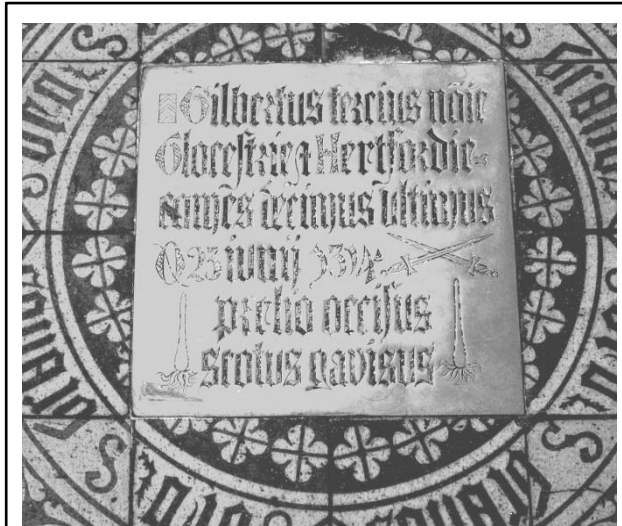 Gilbertus tercius nōīe
Glocestrie & Hertfordie
comes decimus ultimus
O 23 iunij 1314
prelio occisus
scotus gavisus